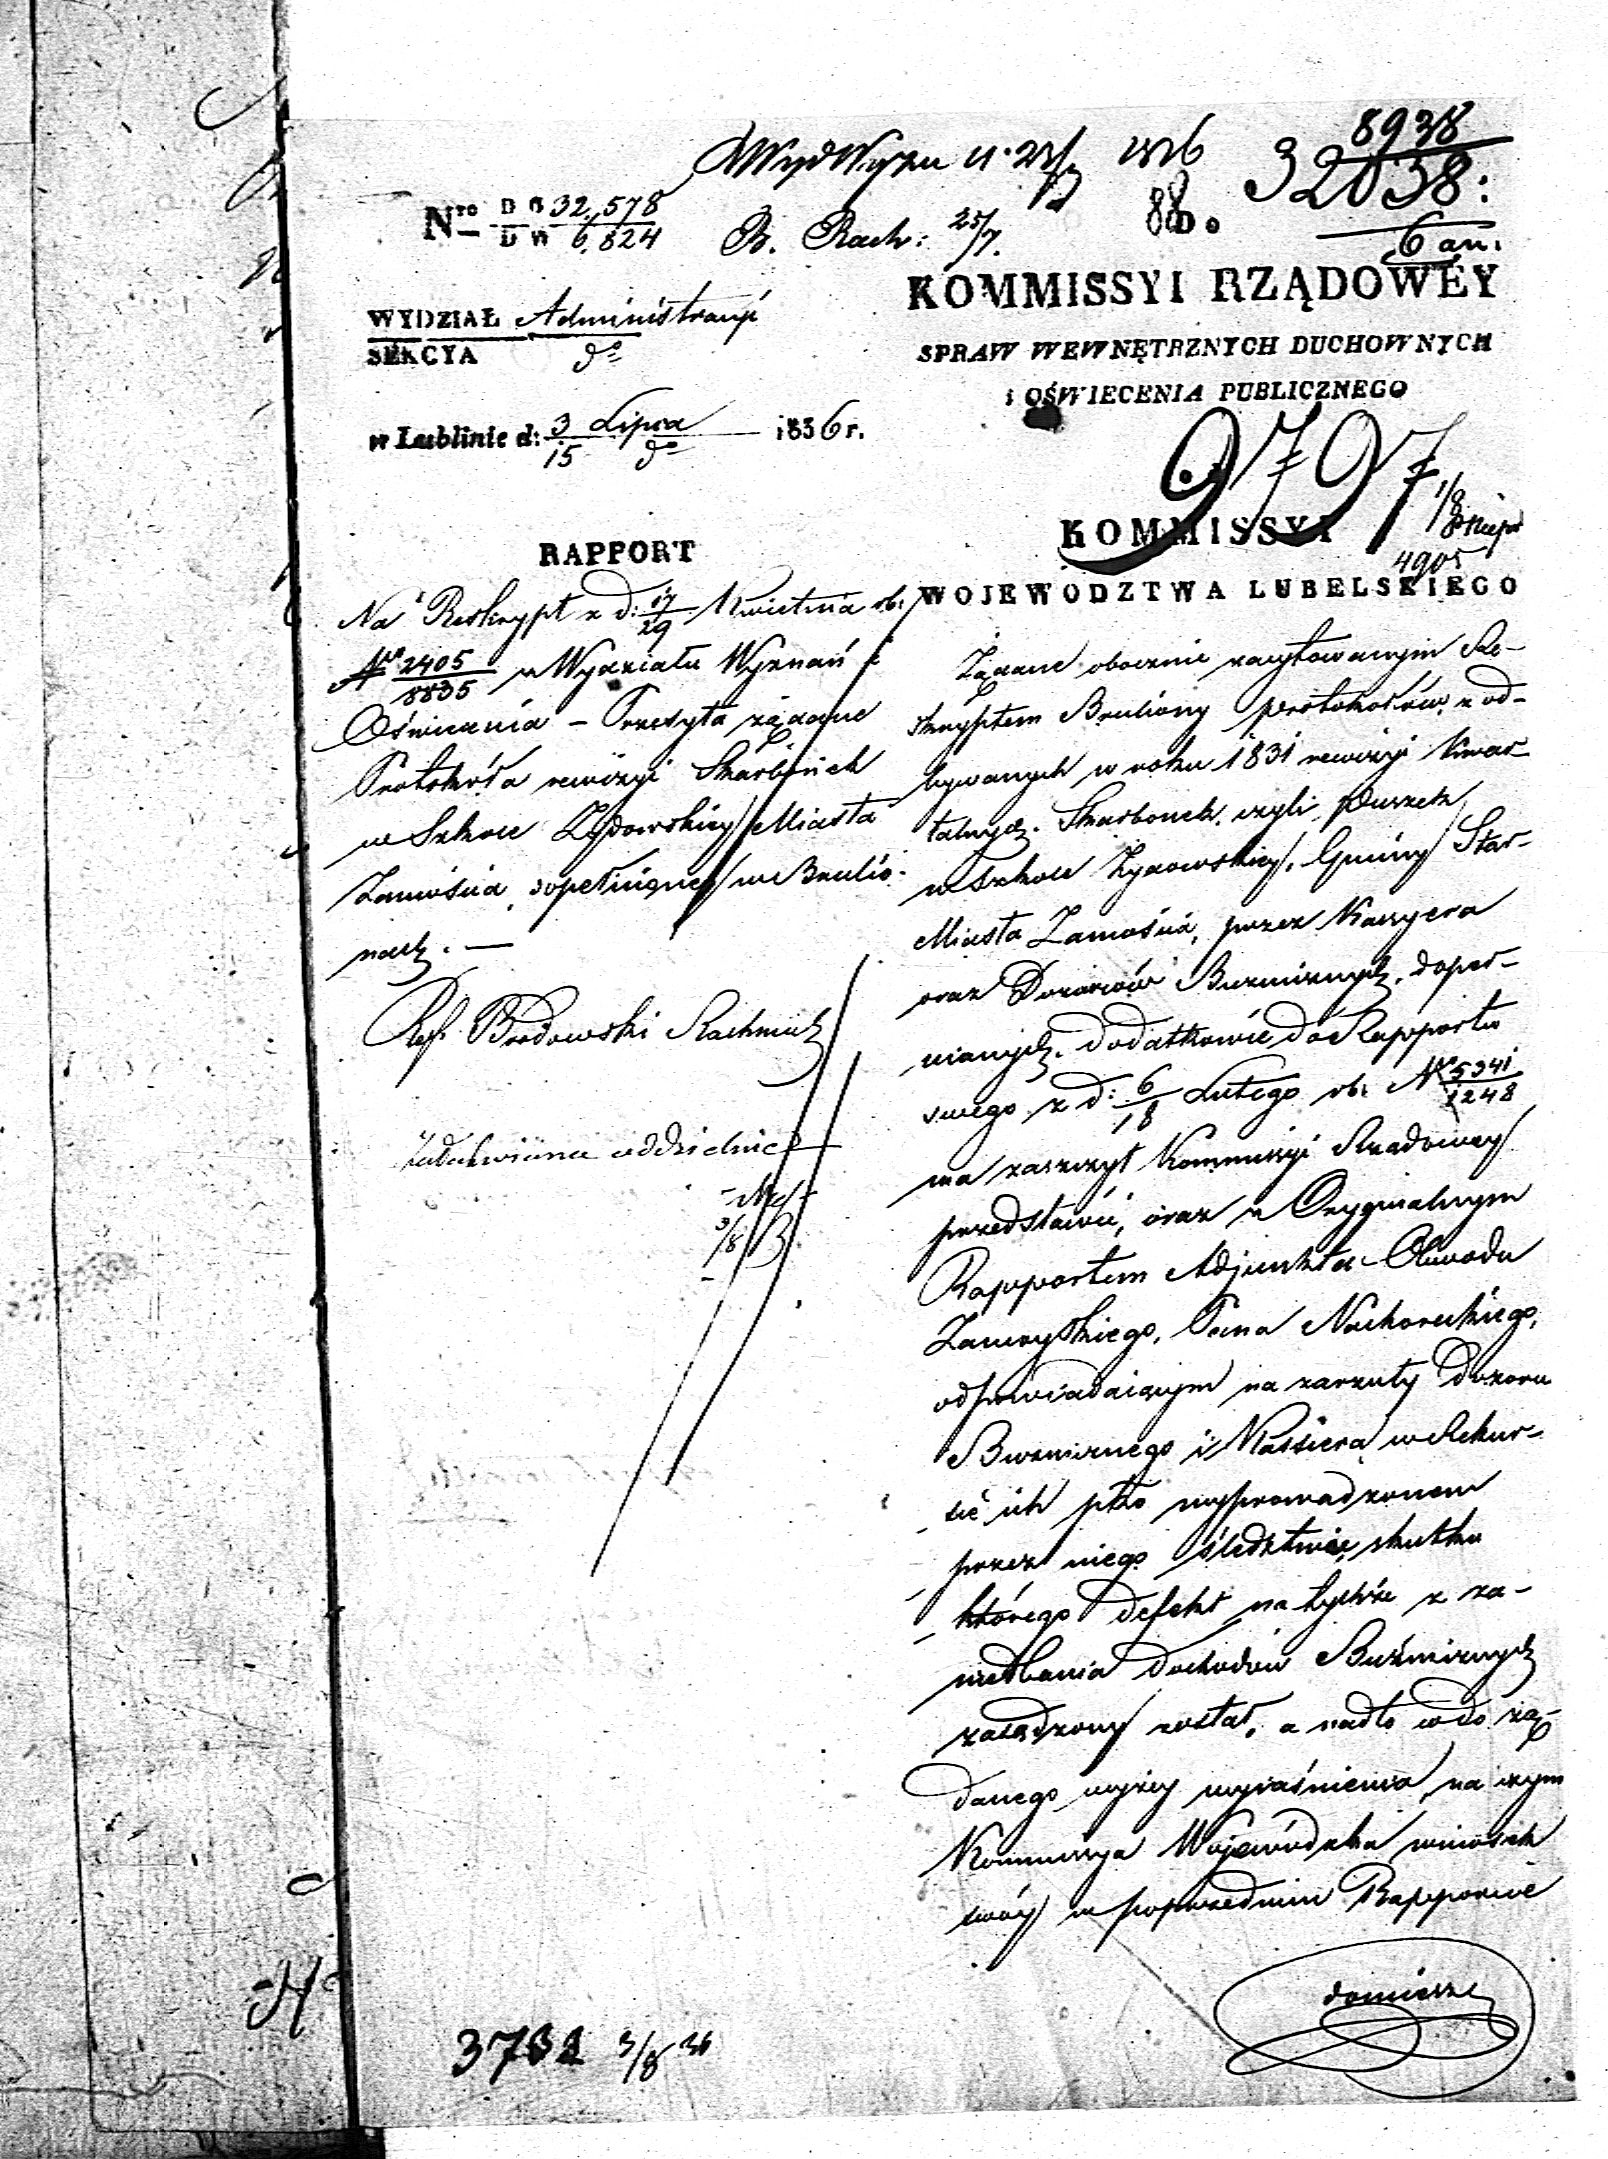 8938
32038:
6 an.
Nro D G 32,578
D W 6,824
B. Rach: 25/7.
88
Do
KOMMISSYI RZĄDOWÉY
SPRAW WEWNĘTRZNYCH DUCHOWNYCH
i OŚWIECENIA PUBLICZNEGO
WYDZIAŁ Administracyi
SEKCYA do
w Lublinie d: 3/15 Lipca do 1836 r.
9797
1/8
4905
KOMMISSYI
WOJEWODZTWA LUBELSKIEGO
RAPPORT
Na Reskrypt z d: 17/29 Kwietnia rb:
Nro 2405/8835 z Wydziału Wyznań i
Oświecenia – Przesyła żądane
Protokóła rewizyi Skarbonek
w Szkole Żydowskiey Miasta
Zamościa, dopełnioney w Brulio-
nach. —
Ref. Brodowski Rachmistrz
Załatwiono oddzielnie
3/8
Żądane obocznie zacytowanym Re-
skryptem Bruliony protokołów, z od-
bywanych w roku 1831 rewizyi kwar-
talnych Skarbonek, czyli puszek
w Szkole Żydowskiey, Gminy Star.
Miasta Zamościa, przez Kassyera
oraz Dozorców Bużniczych, dopeł-
nianych, dodatkowie do Rapportu
swego z d: 6/18 Lutego rb: Nro 5341/1248
ma zaszczyt Kommissyi Rządowey
przedstawić, oraz z Oryginalnym
Rapportem Adjunkta Obwodu
Zamoyskiego, Pana Nachoreckiego,
odpowiadaiącym na zarzuty Dozoru
Bużniczego i Kassiera w Rekur-
sie ich pko wyprowadzonem
przez niego śledztwie, skutku
którego defekt na tychże z za-
niedbania dochodów Bużniczych
zasądzony został, a nadto codo żą-
danego wyżey wyiaśnienia, na czym
Kommissya Wojewódzka wniosek
swóy w poprzednim Rapporcie
domieszcz
3732 3/8 36